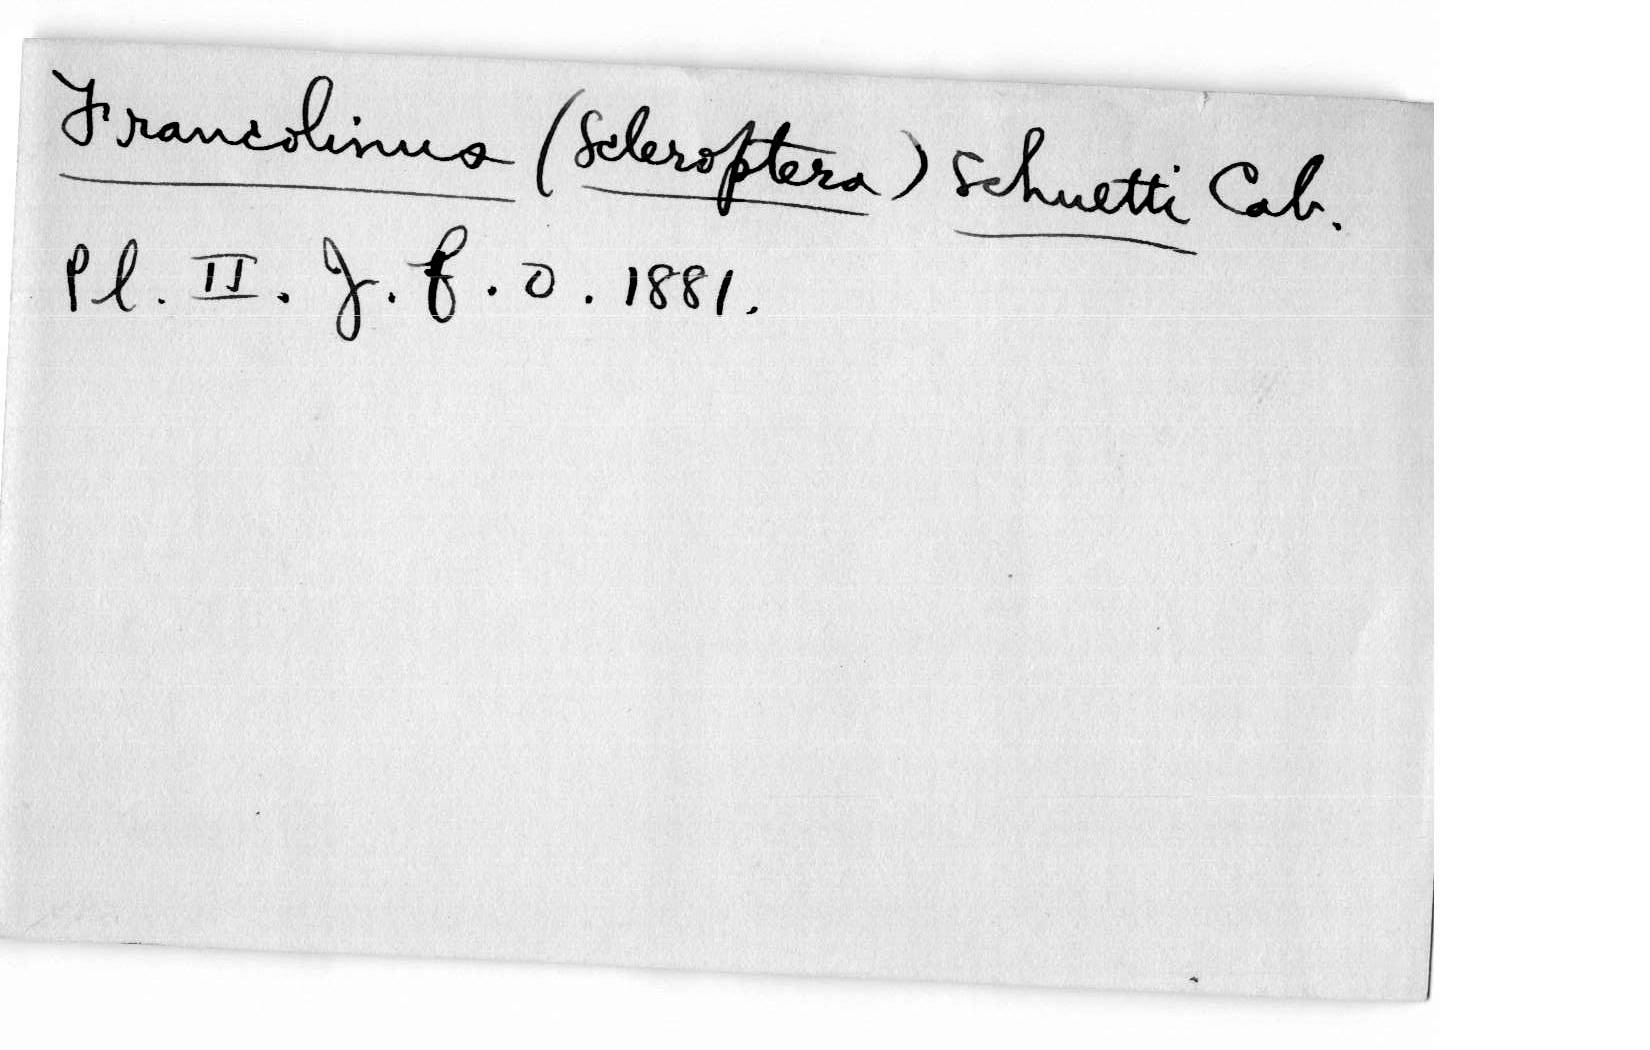 Francolinus (Scleroptera) schuetti Cab.
Pl. II. J. f. O. 1881.